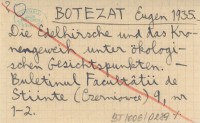 BOTEZAT Eugen 1935.
Die Edelhirsche und das Kro-
nengeweih unter ökologi-
schen Gesichtspunkten. —
Buletinul Facultătii de
Stiinte (Czernowce) 9, nr
1-2.